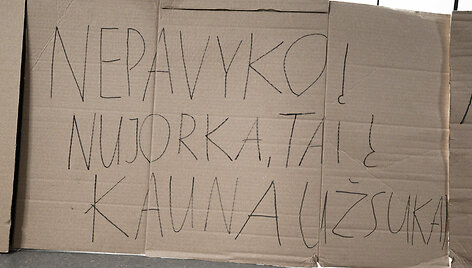 NEPAVYKO Į
NUJORKA, TAI Į
KAUNA UŽSUKA